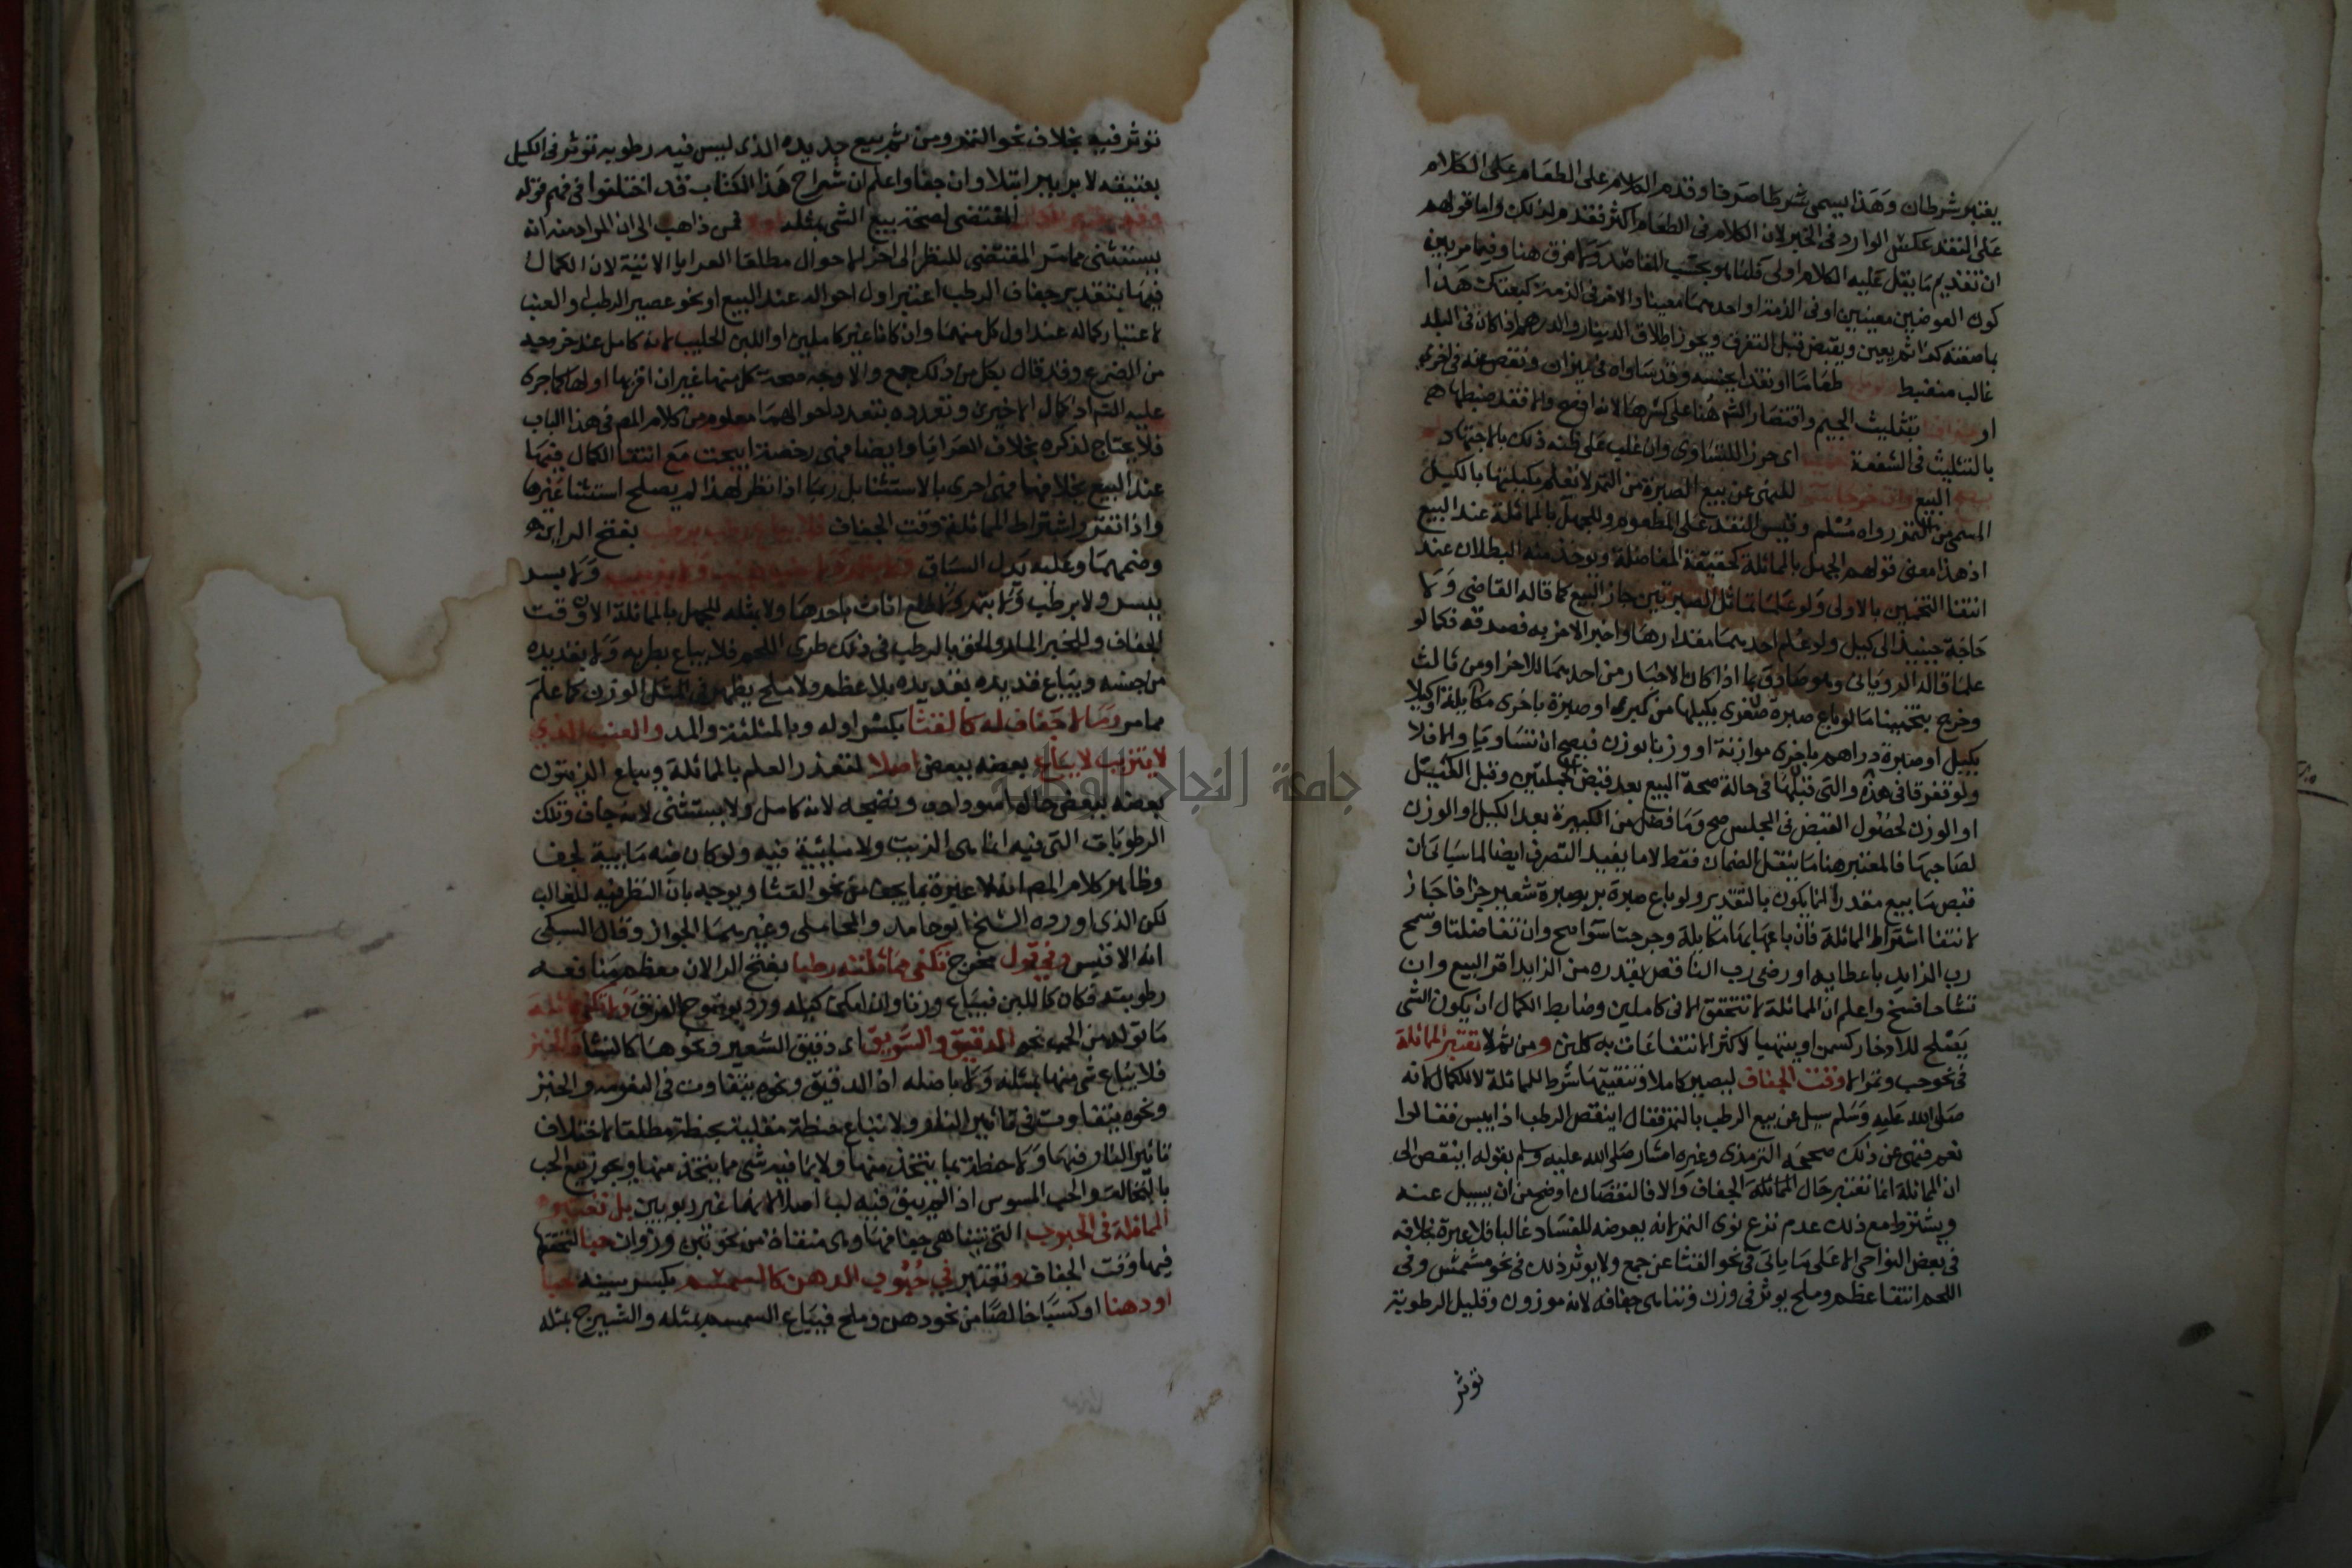 يعتبر شرطان وهذا يسمى شرطا صرفا وقدم الكلام على الطعام على الكلام
على النقد عكس الوارد في الخبر لان الكلام في الطعام اكثر فقدم لذلك واما قولهم
ان تقديم ما يقل عليه الكلام اولى قلنا هو بحسب المقاصد ولا فرق هنا وفيما مر بين
كون العوضين معينين او في الذمة او احدهما معينا والاخر في الذمة كبعتك هذا
بما صفته كذا ثم يعين ويقبض قبل التفرق ويجوز اطلاق الدينار والدرهم اذا كان في البلد
غالب منضبط طعاما او نقدا بجنسه وقد ساواه في ميزان ونقص عنه في اخرى
او بتثليث الجيم واقتصار الشم هنا على كسرها لانه افصح والا فقد ضبطها هم
بالتثليث في الشفعة اى حزرا للتساوى وان غلب على ظنه ذلك بالاجتهاد
البيع للنهى عن بيع الصبرة من التمر لا تعلم مكيلتها بالكيل
المسمى من التمر رواه مسلم وقيس النقد على المطعوم وللجهل بالمماثلة عند البيع
اذ هذا معنى قولهم الجهل بالمماثلة كحقيقة المفاضلة ويوخذ منه البطلان عند
انتفا التخمين بالاولى ولو علما تماثل الصبرتين جاز البيع كما قاله القاضى ولا
حاجة حينيذ الى كيل ولو علم احدهما مقدارهما واخبر الاخر به فصدقه فكما لو
علما قاله الرويانى وهو صادق بما اذا كان الاخبار من احدهما للاخر او من ثالث
وخرج بتخمينا ما لو باع صبرة صغرى بكيلها من كبرى او صبرة باخرى مكايلة او كيلا
بكيل او صبرة دراهم باخرى موازنة او وزنا بوزن فيصح ان تساويا والا فلا
ولو تفرقا في هذه والتى قبلها في حالة صحة البيع بعد قبض الجملتين وقبل الكيل
او الوزن لحصول القبض في المجلس صح وما فضل من الكبيرة بعد الكيل او الوزن
لصاحبها فالمعتبر هنا ما ينقل الضمان فقط لا ما يفيد التصرف ايضا لما سياتى ان
قبض ما بيع مقدرا انما يكون بالتقدير ولو باع صبرة بر بصبرة شعير جزافا جاز
لانتفا اشتراط المماثلة فان باعها بها مكايلة وخرجتا سوا صح وان تفاضلتا وسمح
رب الزايد باعطايه او رضى رب الناقص بقدره من الزايد اقر البيع وان
تشاحا فسخ واعلم ان المماثلة لا تتحقق الا في كاملين وضابط الكمال ان يكون الشى
يصلح للادخار كسمن او يتهيا لاكثر الانتفاعات به كلبن ومن ثم لا تعتبر المماثلة
في نحو حب وتمر الا وقت الجفاف ليصير كاملا وتنقيتها شرط للمماثلة لا للكمال لانه
صلى الله عليه وسلم سيل عن بيع الرطب بالتمر فقال اينقص الرطب اذا يبس فقالوا
نعم فنهى عن ذلك صححه الترمذى وغيره اشار صلى الله عليه وسلم بقوله اينقص الى
ان المماثلة انما تعتبر حال المماثلة الجفاف والا فالنقصان اوضح من ان يسيل عنه
ويشترط مع ذلك عدم نزع نوى التمر لانه يعرضه للفساد غالبا فلا عبرة بخلافه
في بعض النواحى الا على ما ياتى في نحو القثا عن جمع ولا يوثر ذلك في نحو مشمش وفى
اللحم انتفا عظم وملح يوثر في وزن وتناهى جفافه لانه موزون وقليل الرطوبة
توثر
توثر فيه بخلاف نحو التمر ومن ثم بيع جديده الذى ليس فيه رطوبه توثر في الكيل
بعتيقه لا بر ببر ابتلا وان جفا واعلم ان شراح هذا الكتاب قد اختلفوا في فهم قوله
المقتضى لصحة بيع الشى بمثله فمن ذاهب الى ان المراد منه انه
يستثنى مما مر المقتضى للنظر الى اخر الاحوال مطلقا العرايا الاتية لان الكمال
فيها بتقدير جفاف الرطب اعتبر اول احواله عند البيع او نحو عصير الرطب والعنب
لاعتبار كماله عند اول كل منهما وان كانا غير كاملين او اللبن الحليب لانه كامل عند خروجه
من الضرع وقد قال بكل من ذلك جمع والاوجه صحة كل منها غير ان اقربها اولها كما جرى
عليه الشم اذ كمال الاخيرين وتعدده بتعدد احوالهما معلوم من كلام المص في هذا الباب
فلا يحتاج لذكره بخلاف العرايا وايضا فهى رخصة ابيحت مع انتفا الكمال فيها
عند البيع بخلافهما فهى احرى بالاستثنا بل ربما اذا نظر لهذا لم يصلح استثنا غيرها
واذا تقرر اشتراط المماثلة وقت الجفاف فلا يباع رطب برطب بفتح الراين
وضمهما وعليه يدل السياق ولا بسر
ببسر ولا برطب ولا بتمر ولا طلع اناث باحدها ولا بمثله للجهل بالمماثلة الان وقت
الجفاف وللخبر المار والحق بالرطب في ذلك طرى اللحم فلا يباع بطريه ولا بقديده
من جنسه ويباع قديده بقديده بلا عظم ولا ملح يظهر في الوزن كما علم
مما مر وما لا جفاف له كالقثا بكسر اوله وبالمثلثة والمد والعنب الذي
لا يتزبب لا يباع بعضه ببعض اصلا لتعذر العلم بالمماثلة ويباع الزيتون
بعضه ببعض حال اسوداده ونضجه لانه كامل ولا يستثنى لانه جاف وتلك
الرطوبات التى فيه انما هى الزيت ولا مايية فيه ولو كان فيه مايية لجف
وظاهر كلام المص انه لا عبرة بما يجف من نحو القثا ويوجه بان النظر فيه للغالب
لكن الذى اورده الشيخ ابو حامد والمحاملى وغيرهما الجواز وقال السبكى
انه الاقيس وفي قول مخرج تكفي مماثلته رطبا بفتح الرا لان معظم منافعه
رطوبته فكان كاللبن فيباع وزنا وان امكن كيله ورد بوضوح الفرق ولا تكفي مماثلة
ما تولد من الحب نحو الدقيق والسويق اى دقيق الشعير ونحوهما كالنشا والخبز
فلا يباع شى منها بمثله ولا باصله اذ الدقيق ونحوه يتفاوت في النعومة والخبز
ونحوه يتفاوت في تاثير النار ولا تباع حنطة مقلية بحنطة مطلقا لاختلاف
تاثير النار فيها ولا حنطة بما يتخذ منها ولا بما فيه شى مما يتخذ منها ويجوز بيع الحب
بالنخالة والحب المسوس اذا لم يبق فيه لب اصلا لانهما غير ربويين بل تعتبر
المماثلة في الحبوب التى تتناهى جفافها وهى منقاة من نحو تبن وزوان حبا لتحققها
فيها وقت الجفاف وتعتبر في حبوب الدهن كالسمسم بكسر سينه حبا
او دهنا او كسبا خالصا من نحو دهن وملح فيباع السمسم بمثله والشيرج بمثله
جامعة النجاح الوطنية